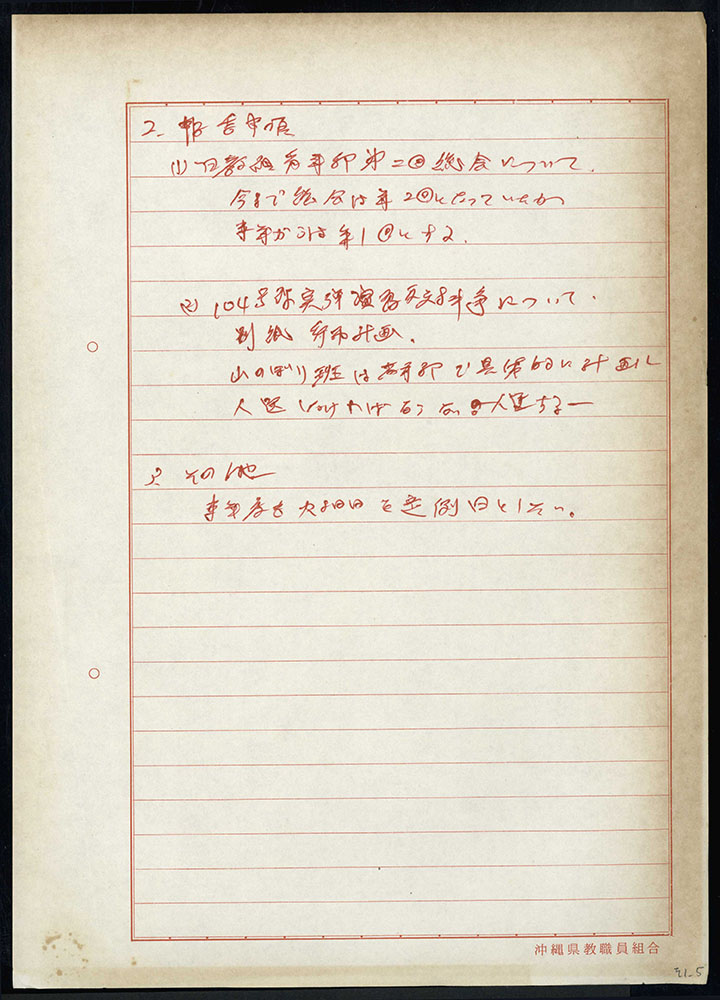 2. 報告事項
(1) 日教組青年部第二回総会について.
今まで総会は年2回となっていたが
本年からは年1回とする.
(2) 104号線実弾演習反対斗争について.
別紙 行布計画.
山のぼり班は青年部で具体的に計画し
人選しなければならない
3. その他
本年度も 定例日としたい。
沖縄県教職員組合
21-5